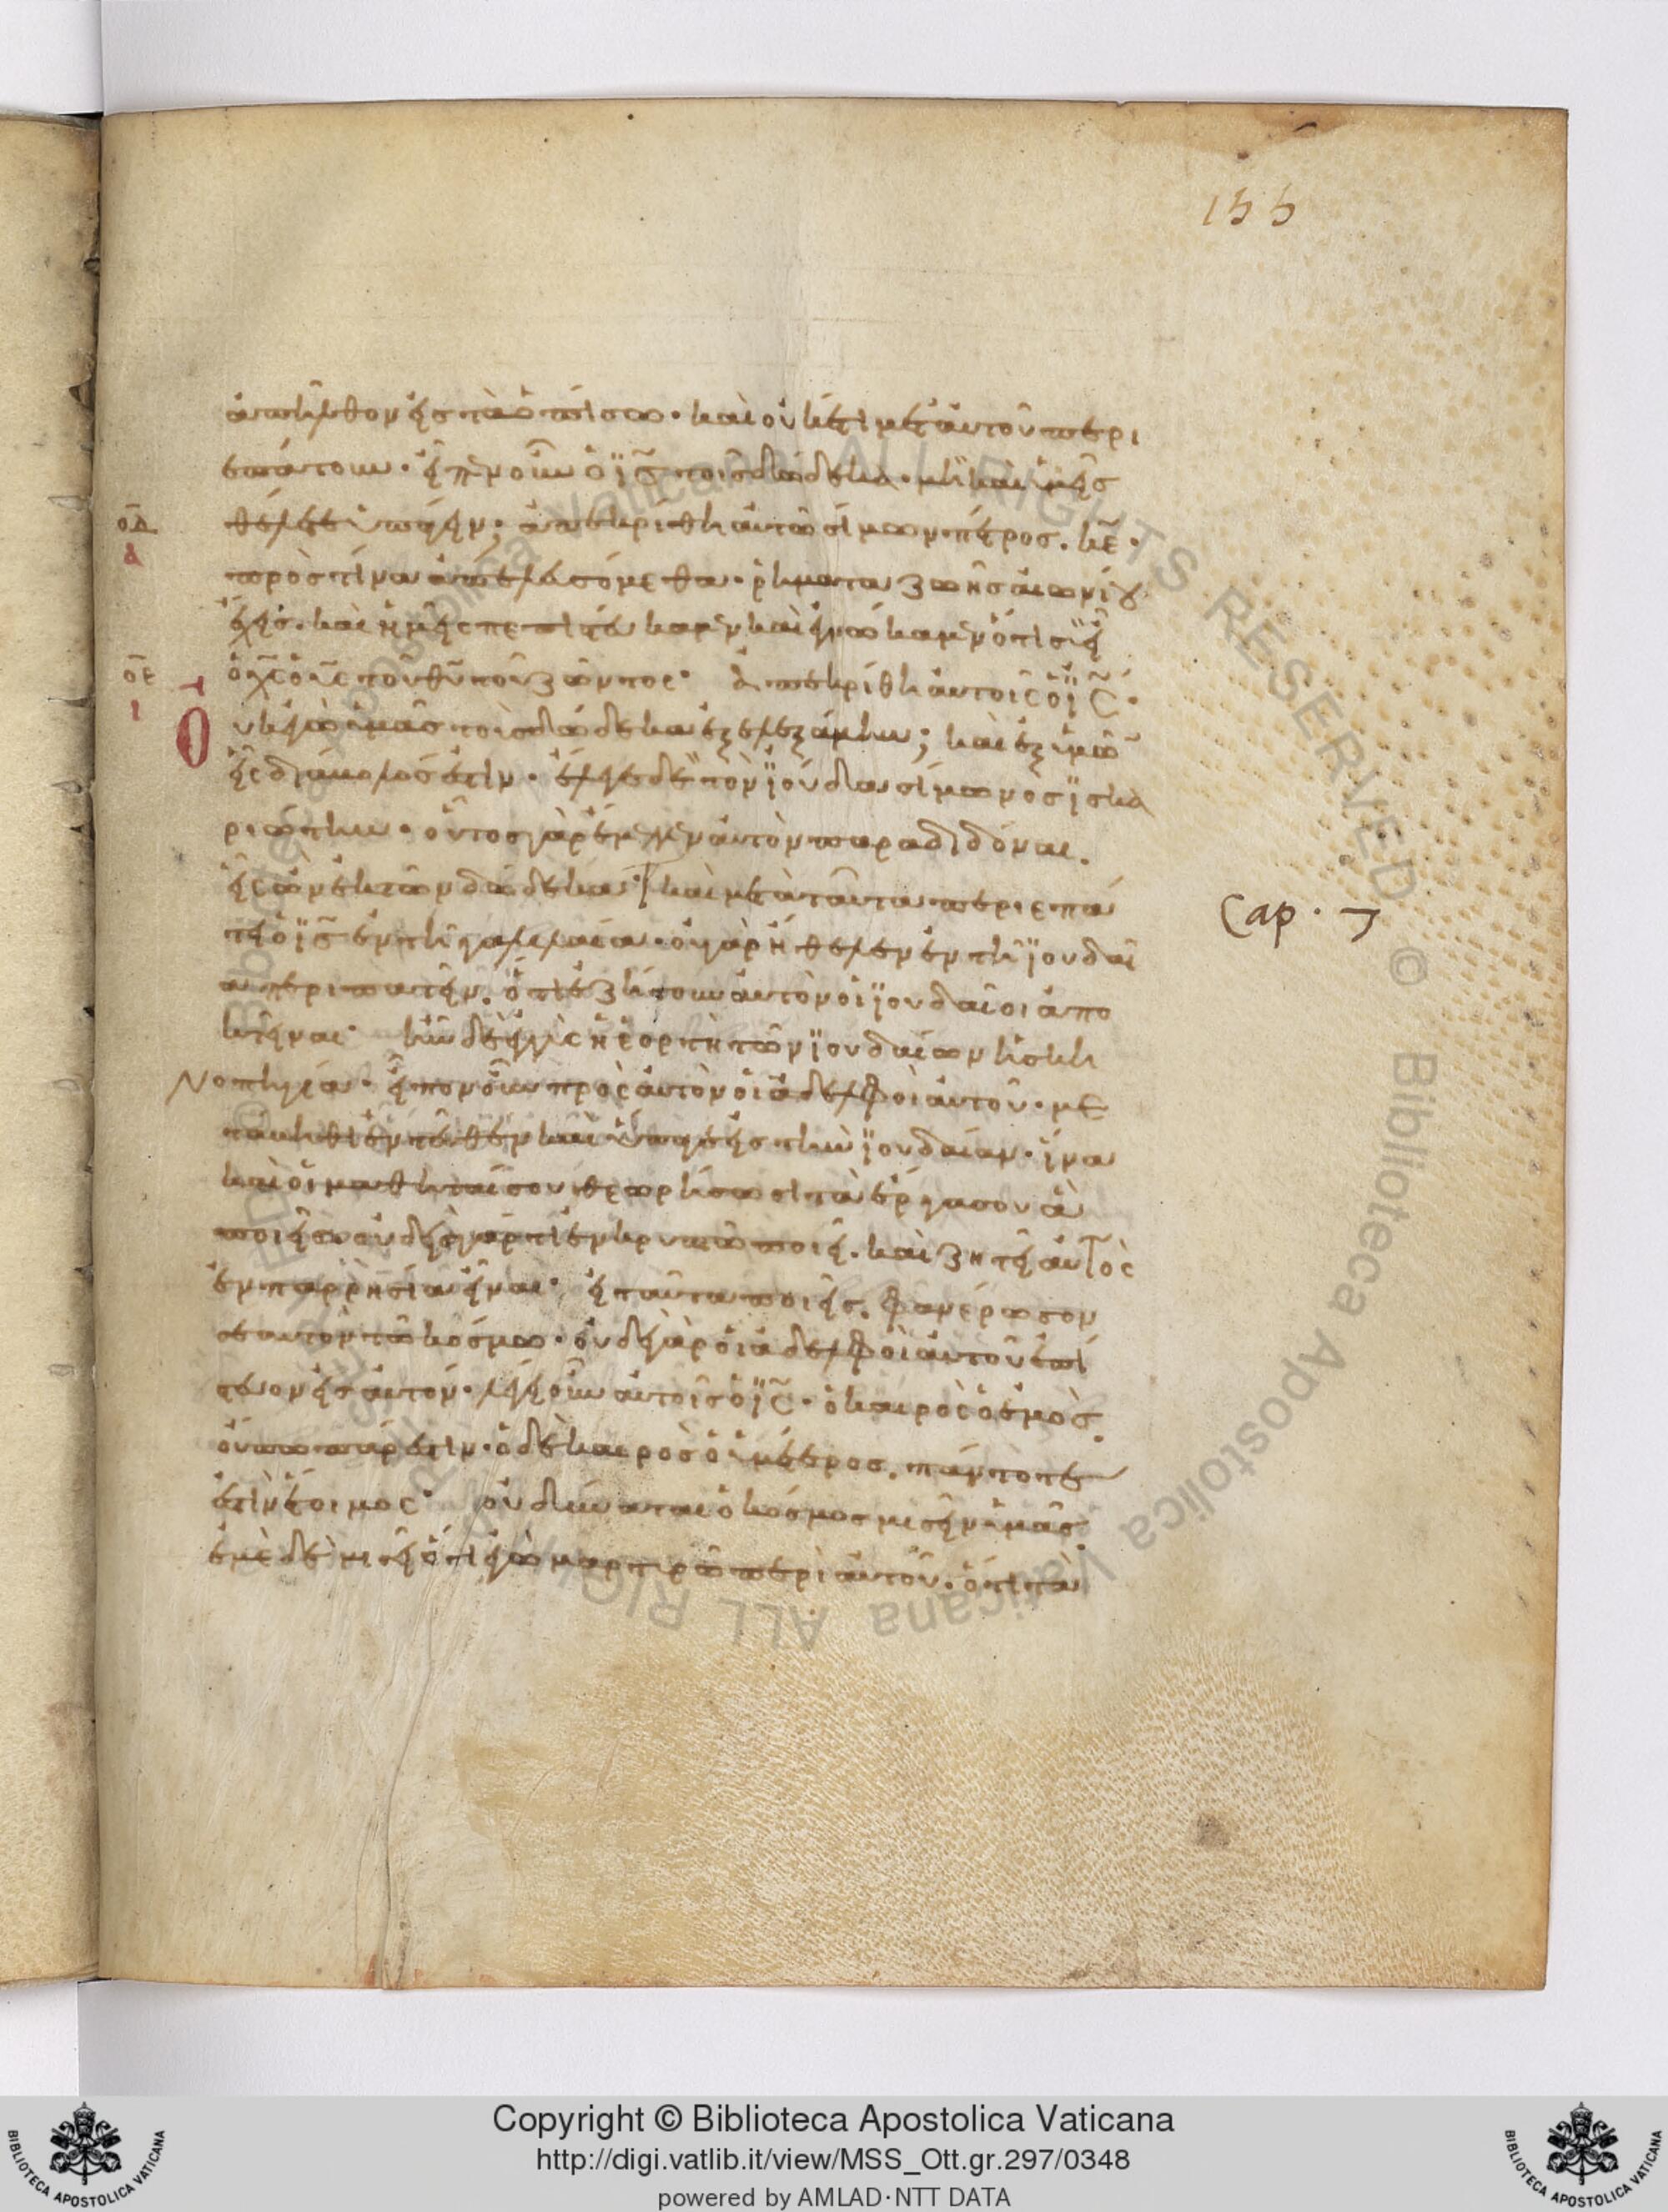 155
ἀπῆλθον εἰς τὰ ὀπίσω· καὶ οὐκέτι μετ' αὐτοῦ περι
επάτουν· εἶπεν οὖν ὁ ϊς τοῖς δώδεκα· μὴ καὶ ὑμεῖς
οδ θέλετε ὑπάγειν; ἀπεκρίθη αὐτῶ σίμων πέτρος. κε·
α πρὸς τίνα ἀπελευσόμεθα· ῥήματα ζωῆς αἰωνίου
ἔχεις. καὶ ἡμεῖς πεπιστεύκαμεν καὶ ἐγνώκαμεν ὅτι σὺ εἶ
οε ὁ χς ὁ υς τοῦ θυ τοῦ ζῶντος· ἀπεκρίθη αὐτοῖς ὁ ϊς·
ι Οὐκ ἐγὼ ὑμᾶς τοὺς δώδεκα ἐξελεξάμην; καὶ ἐξ ὑμῶ
εἷς διάβολος ἐστιν· ἔλεγε δὲ τὸν ϊούδαν σίμωνος ϊσκα
ριώτην· οὗτος γὰρ ἔμελλεν αὐτὸν παραδιδόναι.
εἷς ὢν ἐκ τῶν δώδεκα· καὶ μετὰ ταῦτα περιεπά
Cap. 7
τει ὁ ϊς ἐν τῆ γαλιλαία· οὐ γὰρ ἤθελεν ἐν τῆ ϊουδαί
α περιπατεῖν. ὅτι ἐζήτουν αὐτὸν οἱ ϊουδαῖοι ἀπο
κτεῖναι· ἦν δὲ ἐγγὺς ἡ ἑορτὴ τῶν ϊουδαίων ἡ σκη
νοπηγία· εἶπον οὖν πρὸς αὐτὸν οἱ ἀδελφοὶ αὐτοῦ· με
τάβηθι ἐντεῦθεν καὶ ὕπαγε εἰς τὴν ϊουδαίαν· ἵνα
καὶ οἱ μαθηταί σου θεωρήσωσι τὰ ἔργα σου ἃ
ποιεῖς· οὐδεὶς γάρ τι ἐν κρυπτῶ ποιεῖ. καὶ ζητεῖ αὐτὸς
ἐν παρρησία εἶναι· εἰ ταῦτα ποιεῖς. φανέρωσον
σεαυτὸν τῶ κόσμω· οὐδὲ γὰρ οἱ ἀδελφοὶ αὐτοῦ ἐπί
στευον εἰς αὐτόν· λέγει οὖν αὐτοῖς ὁ ϊς· ὁ καιρὸς ὁ ἐμὸς
οὔπω πάρεστιν· ὁ δὲ καιρὸς ὁ ὑμέτερος. πάντοτε
ἐστὶν ἕτοιμος· οὐ δύναται ὁ κόσμος μισεῖν ὑμᾶς.
ἐμὲ δὲ μισεῖ ὅτι ἐγὼ μαρτυρῶ περὶ αὐτοῦ. ὅτι τὰ
Copyright © Biblioteca Apostolica Vaticana
http://digi.vatlib.it/view/MSS_Ott.gr.297/0348
powered by AMLAD·NTT DATA
BIBLIOTECA APOSTOLICA VATICANA
BIBLIOTECA APOSTOLICA VATICANA